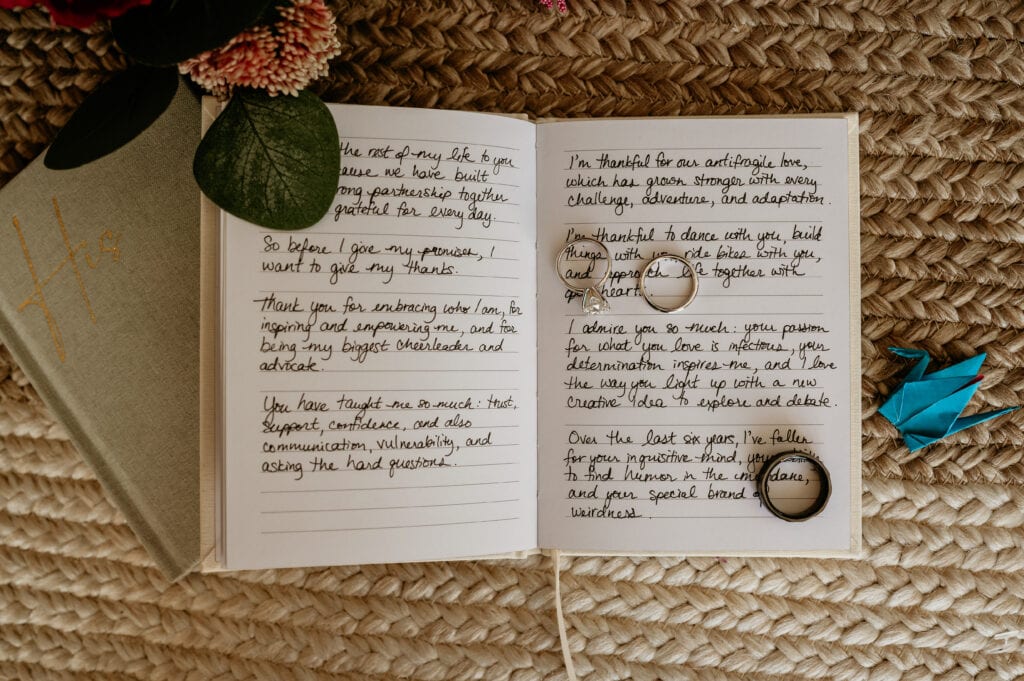 His
the rest of my life to you
ause we have built
rong partnership together
grateful for every day.
So before I give my promises, I
want to give my thanks.
Thank you for embracing who I am, for
inspiring and empowering me, and for
being my biggest cheerleader and
advocate.
You have taught me so much: trust,
support, confidence, and also
communication, vulnerability, and
asking the hard questions.
I'm thankful for our antifragile love,
which has grown stronger with every
challenge, adventure, and adaptation.
I'm thankful to dance with you, build
things with ride bikes with you,
and life together with
heart.
I admire you so much: your passion
for what you love is infectious, your
determination inspires me, and I love
the way you light up with a new
creative idea to explore and debate.
Over the last six years, I've fallen
for your inquisitive mind, you
to find humor in the dane,
and your special brand
weirdness.